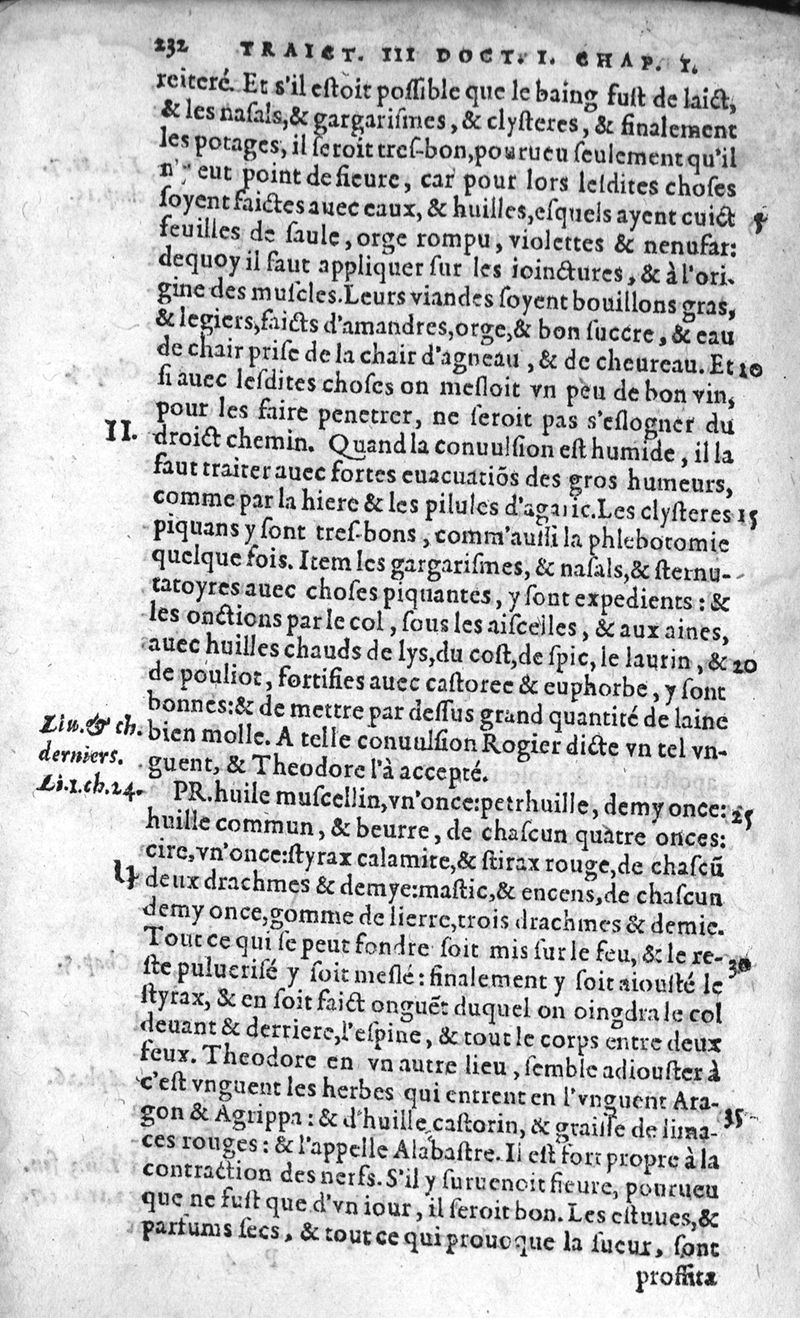 232 TRAICT. III DOCT. I. CHAP. I.
reiteré. Et s'il estoit possible que le baing fust de laict,
& les nasals,& gargarismes, & clysteres, & finalement
les potages, il seroit tres-bon,pourueu seulement qu'il
n'y eut point de fieure, car pour lors lesdites choses
soyent faictes auec eaux, & huilles,esquels ayent cuict 5
feuilles de saule, orge rompu, violettes & nenufar:
dequoy il faut appliquer sur les ioinctures, & à l'ori-
gine des muscles.Leurs viandes soyent bouillons gras,
& legiers,faicts d'amandres,orge,& bon succre, & eau
de chair prise de la chair d'agneau, & de cheureau. Et 10
si auec lesdites choses on mesloit vn peu de bon vin,
pour les faire penetrer, ne seroit pas s'eslogner du
II. droict chemin. Quand la conuulsion est humide, il la
faut traiter auec fortes euacuatiõs des gros humeurs,
comme par la hiere & les pilules d'agaric.Les clysteres 15
piquans y sont tres-bons, comm'aussi la phlebotomie
quelque fois. Item les gargarismes, & nasals,& sternu-
tatoyres auec choses piquantes, y sont expedients: &
les onctions par le col, sous les aiscelles, & aux aines,
auec huilles chauds de lys,du cost,de spic, le laurin, & 20
de pouliot, fortifies auec castoree & euphorbe, y sont
bonnes:& de mettre par dessus grand quantité de laine
Liu. & ch. bien molle. A telle conuulsion Rogier dicte vn tel vn-
derniers. guent, & Theodore l'à accepté.
Li.1.ch.24. PR.huile muscellin,vn'once:petrhuille, demy once: 25
huille commun, & beurre, de chascun quatre onces:
cire,vn'once:styrax calamite,& stirax rouge,de chascũ
deux drachmes & demye:mastic,& encens,de chascun
demy once,gomme de lierre,trois drachmes & demie.
Tout ce qui se peut fondre soit mis sur le feu, & le re- 30
ste puluerisé y soit meslé: finalement y soit aiousté le
styrax, & en soit faict onguẽt duquel on oingdra le col
deuant & derriere,l'espine, & tout le corps entre deux
feux. Theodore en vn autre lieu, semble adiouster à
c'est vnguent les herbes qui entrent en l'vnguent Ara- 35
gon & Agrippa: & d'huille castorin, & graisse de lima-
ces rouges: & l'appelle Alabastre. Il est fort propre à la
contraction des nerfs. S'il y suruenoit fieure, pourueu
que ne fust que d'vn iour, il seroit bon. Les estuues,&
parfums secs, & tout ce qui prouoque la sueur, sont
proffita